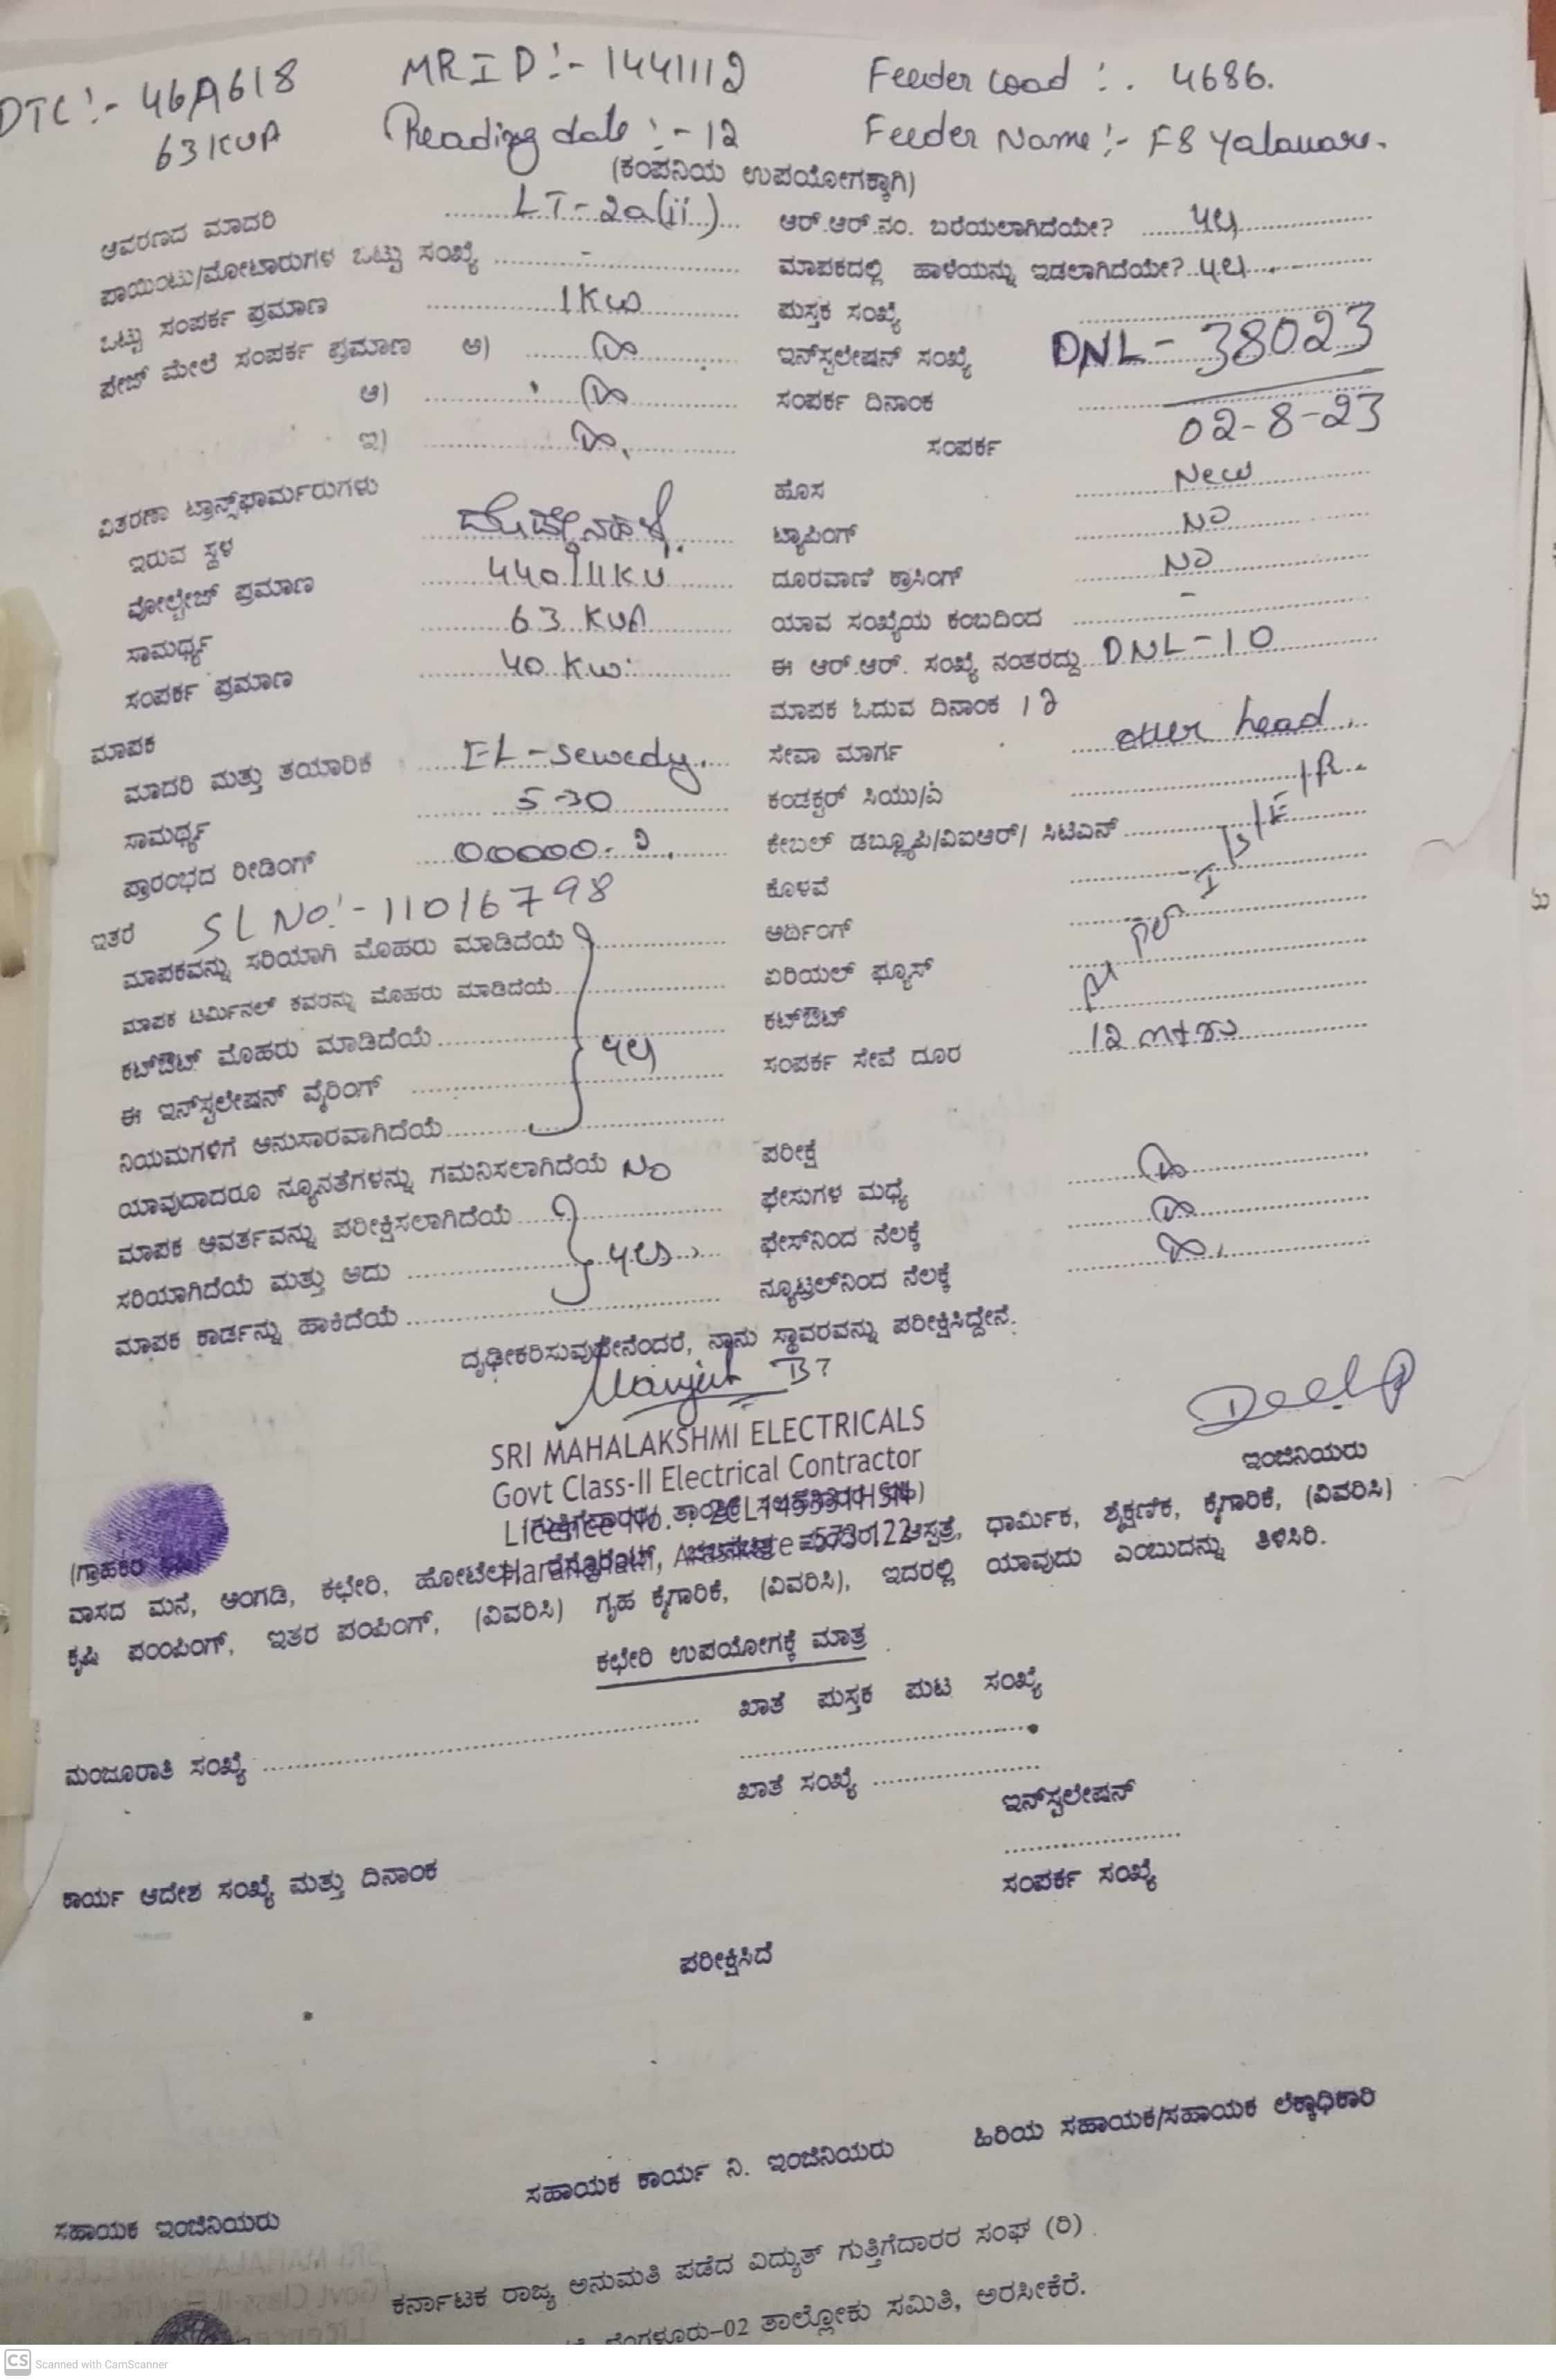 DTC:- 46A618 MR ID:- 1441112 Feeder Load :. 4686.
63 KVA Reading date :- 12 Feeder Name:- F8
(ಕಂಪನಿಯ ಉಪಯೋಗಕ್ಕಾಗಿ)
ಆವರಣದ ಮಾದರಿ LT-2a(ii) ಆರ್.ಆರ್.ನಂ. ಬರೆಯಲಾಗಿದೆಯೇ?
ಪಾಯಿಂಟು/ಮೋಟಾರುಗಳ ಒಟ್ಟು ಸಂಖ್ಯೆ - ಮಾಪಕದಲ್ಲಿ ಹಾಳೆಯನ್ನು ಇಡಲಾಗಿದೆಯೇ?
ಒಟ್ಟು ಸಂಪರ್ಕ ಪ್ರಮಾಣ 1Kw ಪುಸ್ತಕ ಸಂಖ್ಯೆ
ಪೇಜ್ ಮೇಲೆ ಸಂಪರ್ಕ ಪ್ರಮಾಣ ಅ) ಇನ್‌ಸ್ಟಲೇಷನ್ ಸಂಖ್ಯೆ DNL-38023
ಆ) ಸಂಪರ್ಕ ದಿನಾಂಕ 02-8-23
ಇ) ಸಂಪರ್ಕ
ವಿತರಣಾ ಟ್ರಾನ್ಸ್‌ಫಾರ್ಮರುಗಳು ಹೊಸ New
ಇರುವ ಸ್ಥಳ ಟ್ಯಾಪಿಂಗ್ NO
ವೋಲ್ಟೇಜ್ ಪ್ರಮಾಣ 440/11KV ದೂರವಾಣಿ ಕ್ರಾಸಿಂಗ್ NO
ಸಾಮರ್ಥ್ಯ 63 KVA ಯಾವ ಸಂಖ್ಯೆಯ ಕಂಬದಿಂದ -
ಸಂಪರ್ಕ ಪ್ರಮಾಣ 40 Kw ಈ ಆರ್.ಆರ್. ಸಂಖ್ಯೆ ನಂತರದ್ದು DNL-10
ಮಾಪಕ ಮಾಪಕ ಓದುವ ದಿನಾಂಕ 12
ಮಾದರಿ ಮತ್ತು ತಯಾರಿಕೆ EL-sewedy. ಸೇವಾ ಮಾರ್ಗ head
ಸಾಮರ್ಥ್ಯ 5-30 ಕಂಡಕ್ಟರ್ ಸಿಯು/ಎ
ಪ್ರಾರಂಭದ ರೀಡಿಂಗ್ ಕೇಬಲ್ ಡಬ್ಲ್ಯೂಪಿ/ವಿಐಆರ್/ ಸಿಟಿಎಸ್
ಇತರೆ SL NO:- 11016798 ಕೊಳವೆ
ಮಾಪಕವನ್ನು ಸರಿಯಾಗಿ ಮೊಹರು ಮಾಡಿದೆಯೆ ಅರ್ಥಿಂಗ್
ಮಾಪಕ ಟರ್ಮಿನಲ್ ಕವರನ್ನು ಮೊಹರು ಮಾಡಿದೆಯೆ ಏರಿಯಲ್ ಫ್ಯೂಸ್
ಕಟ್‌ಔಟ್ ಮೊಹರು ಮಾಡಿದೆಯೆ ಕಟ್‌ಔಟ್
ಈ ಇನ್‌ಸ್ಟಲೇಷನ್ ವೈರಿಂಗ್ ಸಂಪರ್ಕ ಸೇವೆ ದೂರ 12
ನಿಯಮಗಳಿಗೆ ಅನುಸಾರವಾಗಿದೆಯೆ
ಯಾವುದಾದರೂ ನ್ಯೂನತೆಗಳನ್ನು ಗಮನಿಸಲಾಗಿದೆಯೆ NO ಪರೀಕ್ಷೆ
ಮಾಪಕ ಆವರ್ತವನ್ನು ಪರೀಕ್ಷಿಸಲಾಗಿದೆಯೆ ಫೇಸುಗಳ ಮಧ್ಯೆ
ಸರಿಯಾಗಿದೆಯೆ ಮತ್ತು ಅದು yes ಫೇಸ್‌ನಿಂದ ನೆಲಕ್ಕೆ
ಮಾಪಕ ಕಾರ್ಡನ್ನು ಹಾಕಿದೆಯೆ ನ್ಯೂಟ್ರಲ್‌ನಿಂದ ನೆಲಕ್ಕೆ
ದೃಢೀಕರಿಸುವುದೇನೆಂದರೆ, ನಾನು ಸ್ಥಾವರವನ್ನು ಪರೀಕ್ಷಿಸಿದ್ದೇನೆ.
SRI MAHALAKSHMI ELECTRICALS
Govt Class-II Electrical Contractor
ಇಂಜಿನಿಯರು
Licence No.
(ಗ್ರಾಹಕರ
ವಾಸದ ಮನೆ, ಅಂಗಡಿ, ಕಛೇರಿ, ಹೋಟೆಲ್ ಆಸ್ಪತ್ರೆ, ಧಾರ್ಮಿಕ, ಶೈಕ್ಷಣಿಕ, ಕೈಗಾರಿಕೆ, (ವಿವರಿಸಿ)
ಕೃಷಿ ಪಂಂಪಿಂಗ್, ಇತರ ಪಂಪಿಂಗ್, (ವಿವರಿಸಿ) ಗೃಹ ಕೈಗಾರಿಕೆ, (ವಿವರಿಸಿ), ಇದರಲ್ಲಿ ಯಾವುದು ಎಂಬುದನ್ನು ತಿಳಿಸಿರಿ.
ಕಛೇರಿ ಉಪಯೋಗಕ್ಕೆ ಮಾತ್ರ
ಖಾತೆ ಪುಸ್ತಕ ಪುಟ ಸಂಖ್ಯೆ
ಮಂಜೂರಾತಿ ಸಂಖ್ಯೆ
ಖಾತೆ ಸಂಖ್ಯೆ
ಇನ್‌ಸ್ಟಲೇಷನ್
ಕಾರ್ಯ ಆದೇಶ ಸಂಖ್ಯೆ ಮತ್ತು ದಿನಾಂಕ
ಸಂಪರ್ಕ ಸಂಖ್ಯೆ
ಪರೀಕ್ಷಿಸಿದೆ
ಸಹಾಯಕ ಇಂಜಿನಿಯರು ಸಹಾಯಕ ಕಾರ್ಯ ನಿ. ಇಂಜಿನಿಯರು ಹಿರಿಯ ಸಹಾಯಕ/ಸಹಾಯಕ ಲೆಕ್ಕಾಧಿಕಾರಿ
ಕರ್ನಾಟಕ ರಾಜ್ಯ ಅನುಮತಿ ಪಡೆದ ವಿದ್ಯುತ್ ಗುತ್ತಿಗೆದಾರರ ಸಂಘ (ರಿ)
ಬೆಂಗಳೂರು-02 ತಾಲ್ಲೋಕು ಸಮಿತಿ, ಅರಸೀಕೆರೆ.
CS Scanned with CamScanner